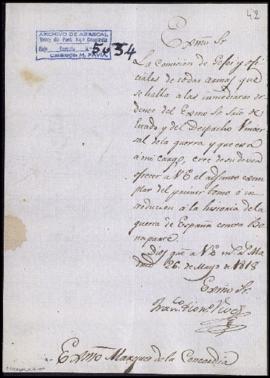 42
ARCHIVO DE ABASCAL
5034
Exmo Sr
La comision de Gefes y ofi
ciales de todas armas que
se halla a las inmediatas or
denes del Exmo Sr Secretario de
Estado y del Despacho Univer
sal de la guerra y que está
a mi cargo, cree de su deber
ofrecer a VE el adjunto exem
plar del primer tomo
troduccion a la historia de la
guerra de España contra Bo
naparte.
Dios gue a VE ms as Ma
drid 26 de Mayo de 1818
Exmo Sr
Exmo Marques de la Concordia